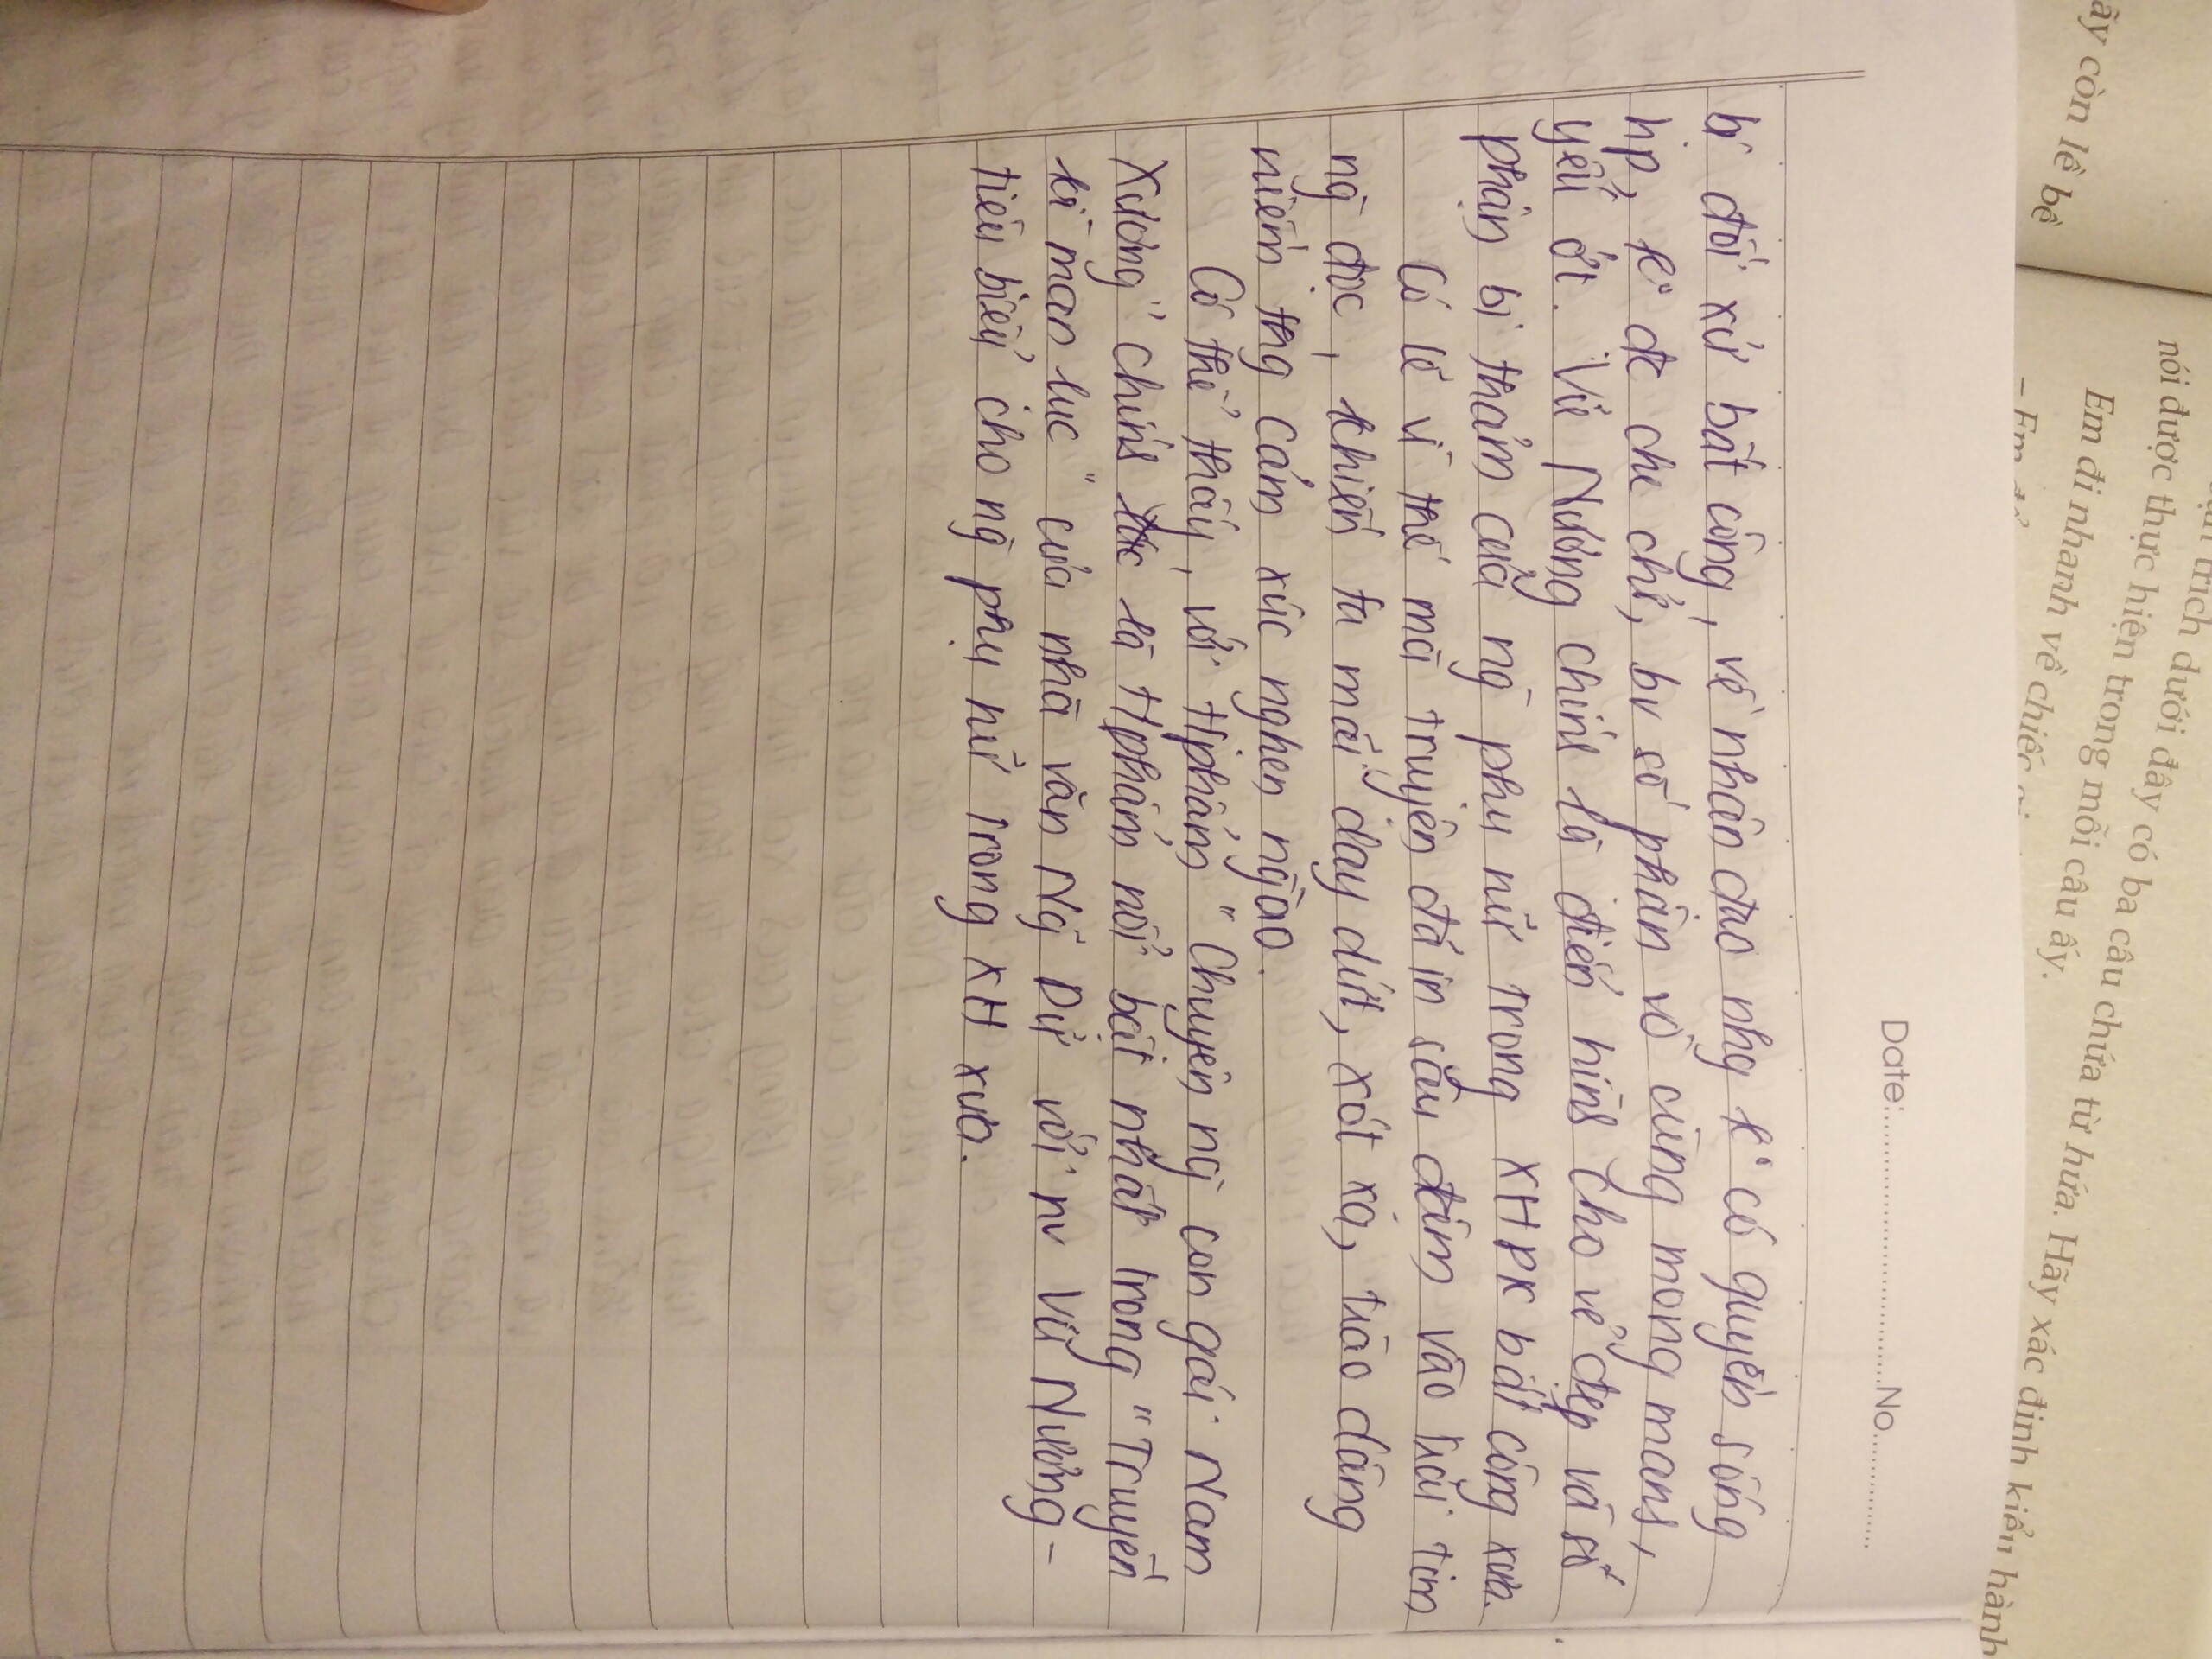 ãy còn lê bê
nói được thực hiện trong mỗi câu ấy.
trích dưới đây có ba câu chứa từ hứa. Hãy xác định kiểu hành
Em đi nhanh về chiếc
– Em
Date: No.
bị đối xử bất công, về nhân đạo nhg k° có quyền sống
hp, k° đc che chở, bv số phận vô cùng mong manh,
yếu ớt. Vũ Nương chính là điển hình cho vẻ đẹp và số
phận bi thảm của ng` phụ nữ trong XHPK bất công xưa.
Có lẽ vì thế mà truyện đã in sâu đậm vào trái tim
ng` đọc, khiến ta mãi day dứt, xót xa, trào dâng
niềm thg cảm xúc nghẹn ngào.
Có thể thấy, với tphẩm "Chuyện ng` con gái Nam
Xương" chính là tphẩm nổi bật nhất trong "Truyền
kì mạn lục" của nhà văn Ng~ Dữ với nv Vũ Nương -
tiêu biểu cho ng` phụ nữ trong XH xưa.